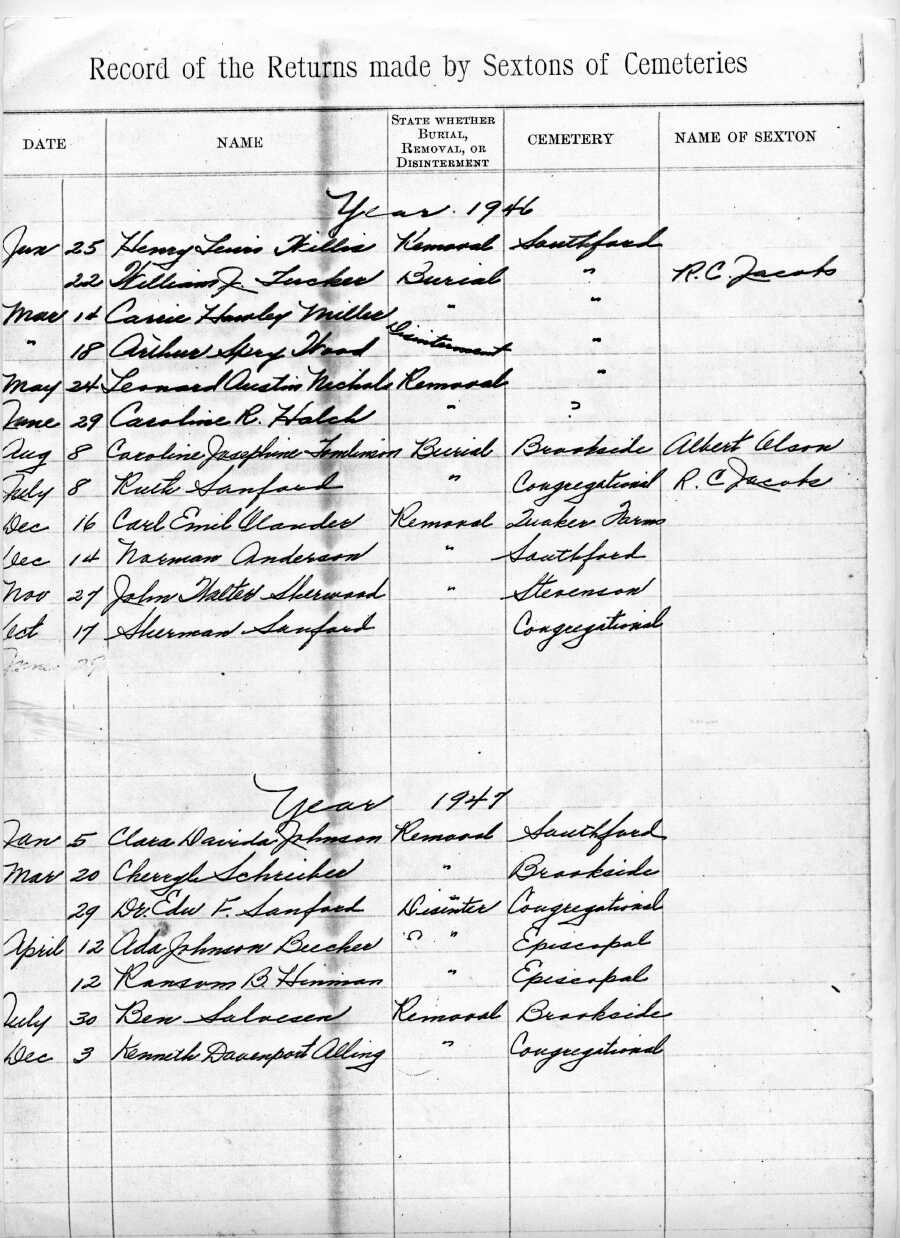 Record of the Returns made by Sextons of Cemeteries
DATE NAME STATE WHETHER BURIAL, REMOVAL, OR DISINTERMENT CEMETERY NAME OF SEXTON
Year 1946
Jan 25 Henry Lewis Willis Removal Southford
22 William J. Tucker Burial " R. C. Jacobs
Mar 14 Carrie Hawley Miller " "
" 18 Arthur Spery Wood Disinterment "
May 24 Leonard Austin Nichols Removal "
June 29 Caroline R. Hatch " ?
Aug 8 Caroline Josephine Tomlinson Burial Brookside Albert Olson
July 8 Ruth Sanford " Congregational R. C Jacobs
Dec 16 Carl Emil Olander Removal Quaker Farms
Dec 14 Norman Anderson " Southford
Nov 27 John Walter Sherwood " Stevenson
Oct 17 Sherman Sanford Congregational
June 29
Year 1947
Jan 5 Clara Davida Johnson Removal Southford
Mar 20 Cherryle Schreiber " Brookside
29 Dr. Edw F. Sanford Disinter Congregational
April 12 Ada Johnson Beecher ? " Episcopal
12 Ransom B. Hinman " Episcopal
July 30 Ben Salvesen Removal Brookside
Dec 3 Kenneth Davenport Alling " Congregational